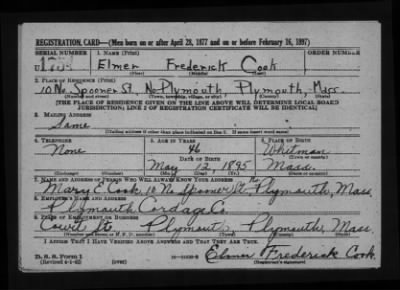 REGISTRATION CARD—(Men born on or after April 28, 1877 and on or before February 16, 1897)
SERIAL NUMBER 1. NAME (Print) ORDER NUMBER
U Elmer Frederick Cook
(First) (Middle) (Last)
2. PLACE OF RESIDENCE (Print)
10 No. Spooner St., No. Plymouth, Plymouth, Mass.
(Number and street) (Town, township, village, or city) (County) (State)
[THE PLACE OF RESIDENCE GIVEN ON THE LINE ABOVE WILL DETERMINE LOCAL BOARD
JURISDICTION; LINE 2 OF REGISTRATION CERTIFICATE WILL BE IDENTICAL]
3. MAILING ADDRESS
Same
[Mailing address if other than place indicated on line 2. If same insert word same]
4. TELEPHONE 5. AGE IN YEARS 6. PLACE OF BIRTH
None 46 Whitman
DATE OF BIRTH (Town or county)
May 12, 1895 Mass.
(Exchange) (Number) (Mo.) (Day) (Yr.) (State or country)
7. NAME AND ADDRESS OF PERSON WHO WILL ALWAYS KNOW YOUR ADDRESS
Mary E. Cook, 10 No. Spooner St. No. Plymouth, Mass
8. EMPLOYER'S NAME AND ADDRESS
Plymouth Cordage Co.
9. PLACE OF EMPLOYMENT OR BUSINESS
Court St. Plymouth, Plymouth, Mass.
(Number and street or R. F. D. number) (Town) (County) (State)
I AFFIRM THAT I HAVE VERIFIED ABOVE ANSWERS AND THAT THEY ARE TRUE.
D. S. S. Form 1 Elmer Frederick Cook
(Revised 4-1-42) (over) (Registrant's signature)